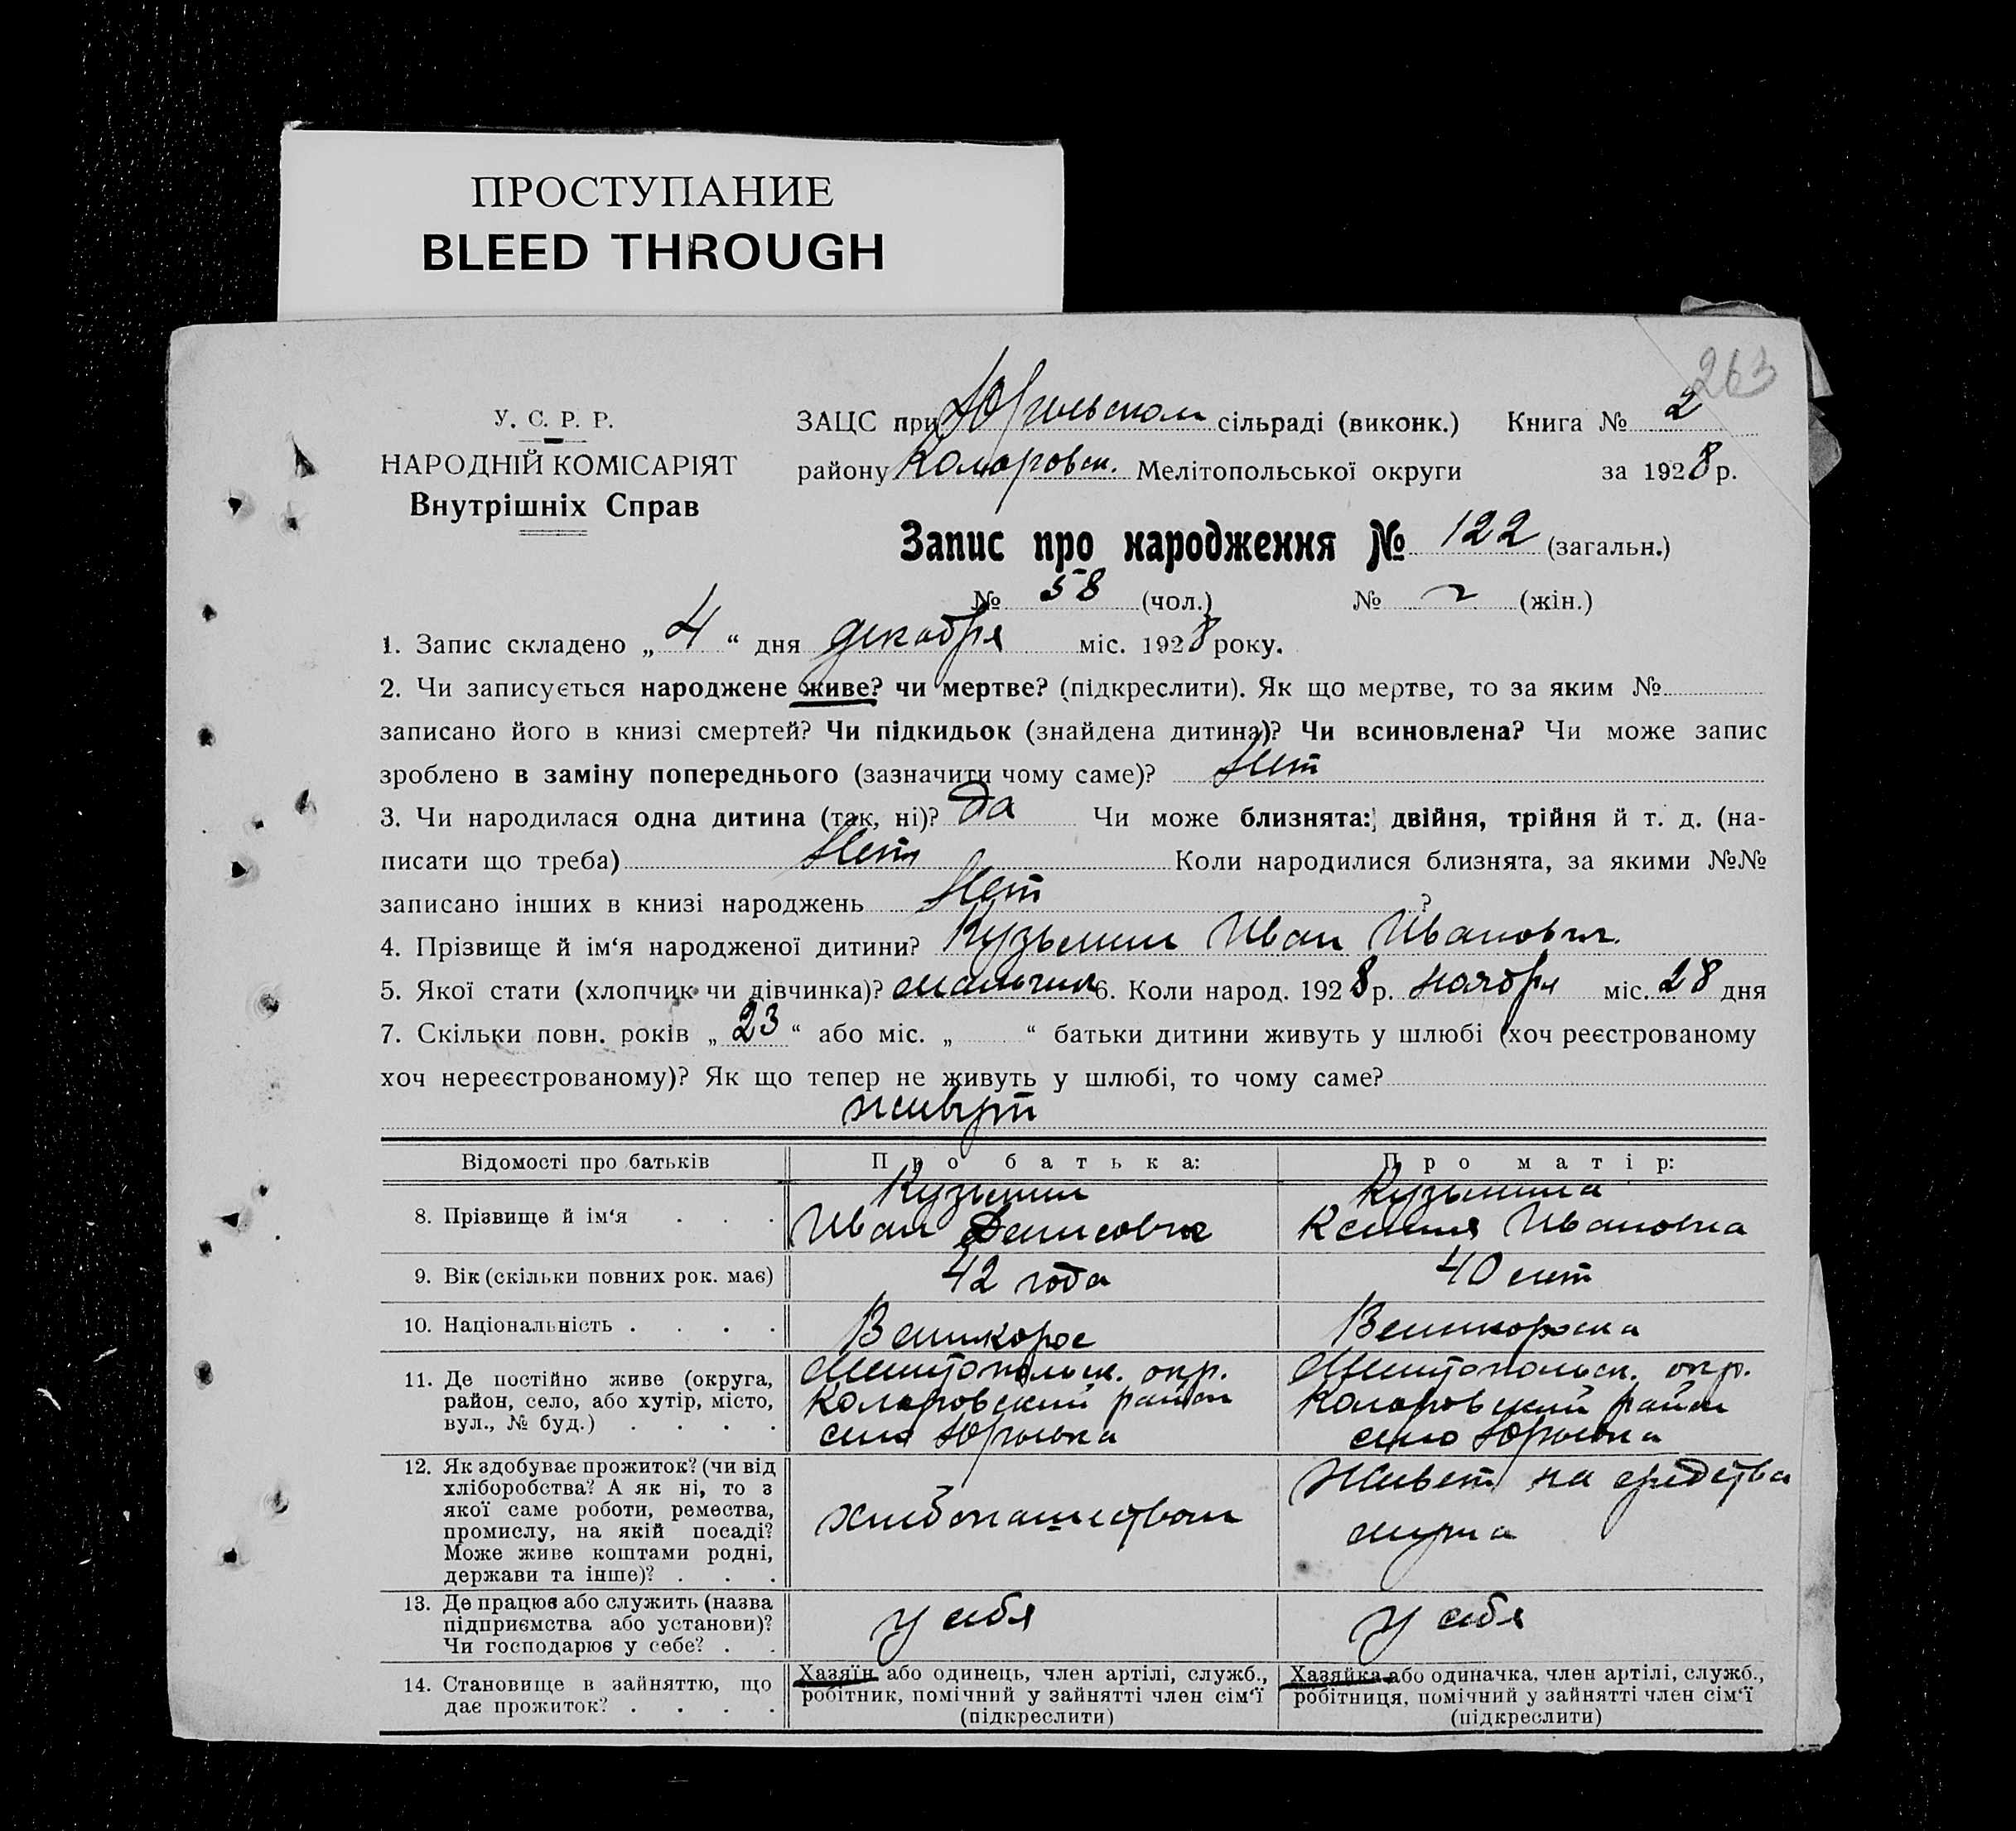 ПРОСТУПАНИЕ
BLEED THROUGH
263
У. С. Р. Р.
НАРОДНІЙ КОМІСАРІЯТ
Внутрішніх Справ
ЗАЦС при Юрьевском сільраді (виконк.) Книга № 2
району Коларовск. Мелітопольської округи за 1928 р.
Запис про народження № 122 (загальн.)
№ 58 (чол.) № (жін.)
1. Запис складено „ 4 “ дня декабря міс. 1928 року.
2. Чи записується народжене живе? чи мертве? (підкреслити). Як що мертве, то за яким №
записано його в книзі смертей? Чи підкидьок (знайдена дитина)? Чи всиновлена? Чи може запис
зроблено в заміну попереднього (зазначити чому саме)? Нет
3. Чи народилася одна дитина (так, ні)? да Чи може близнята: двійня, трійня й т. д. (на-
писати що треба) Нет Коли народилися близнята, за якими №№
записано інших в книзі народжень Нет ?
4. Прізвище й ім‘я народженої дитини? Кузьмин Иван Иванович.
5. Якої стати (хлопчик чи дівчинка)? мальчик 6. Коли народ. 1928 р. ноября міс. 28 дня
7. Скільки повн. років „ 23 “ або міс. „ “ батьки дитини живуть у шлюбі (хоч реєстрованому
хоч нереєстрованому)? Як що тепер не живуть у шлюбі, то чому саме?
живут
Відомості про батьків Про батька: Про матір:
8. Прізвище й ім‘я . . . Кузьмин Иван Денисович Кузьмина Ксения Ивановна
9. Вік (скільки повних рок. має) 42 года 40 лет
10. Національність . . . . Великорос Великороска
11. Де постійно живе (округа,
район, село, або хутір, місто,
вул., № буд.) . . . .
Мелитопольск. окр.
Коларовский район
село Юрьевка
Мелитопольск. окр.
Коларовский район
село Юрьевка
12. Як здобуває прожиток? (чи від
хліборобства? А як ні, то з
якої саме роботи, ремества,
промислу, на якій посаді?
Може живе коштами родні,
держави та інше)? . . .
хлебопашеством
Живет на средства
мужа
13. Де працює або служить (назва
підприємства або установи)?
Чи господарює у себе? . .
у себя
у себя
14. Становище в зайняттю, що
дає прожиток? . . . .
Хазяїн або одинець, член артілі, служб.,
робітник, помічний у зайнятті член сім‘ї
(підкреслити)
Хазяйка або одиначка, член артілі, служб.,
робітниця, помічний у зайнятті член сім‘ї
(підкреслити)